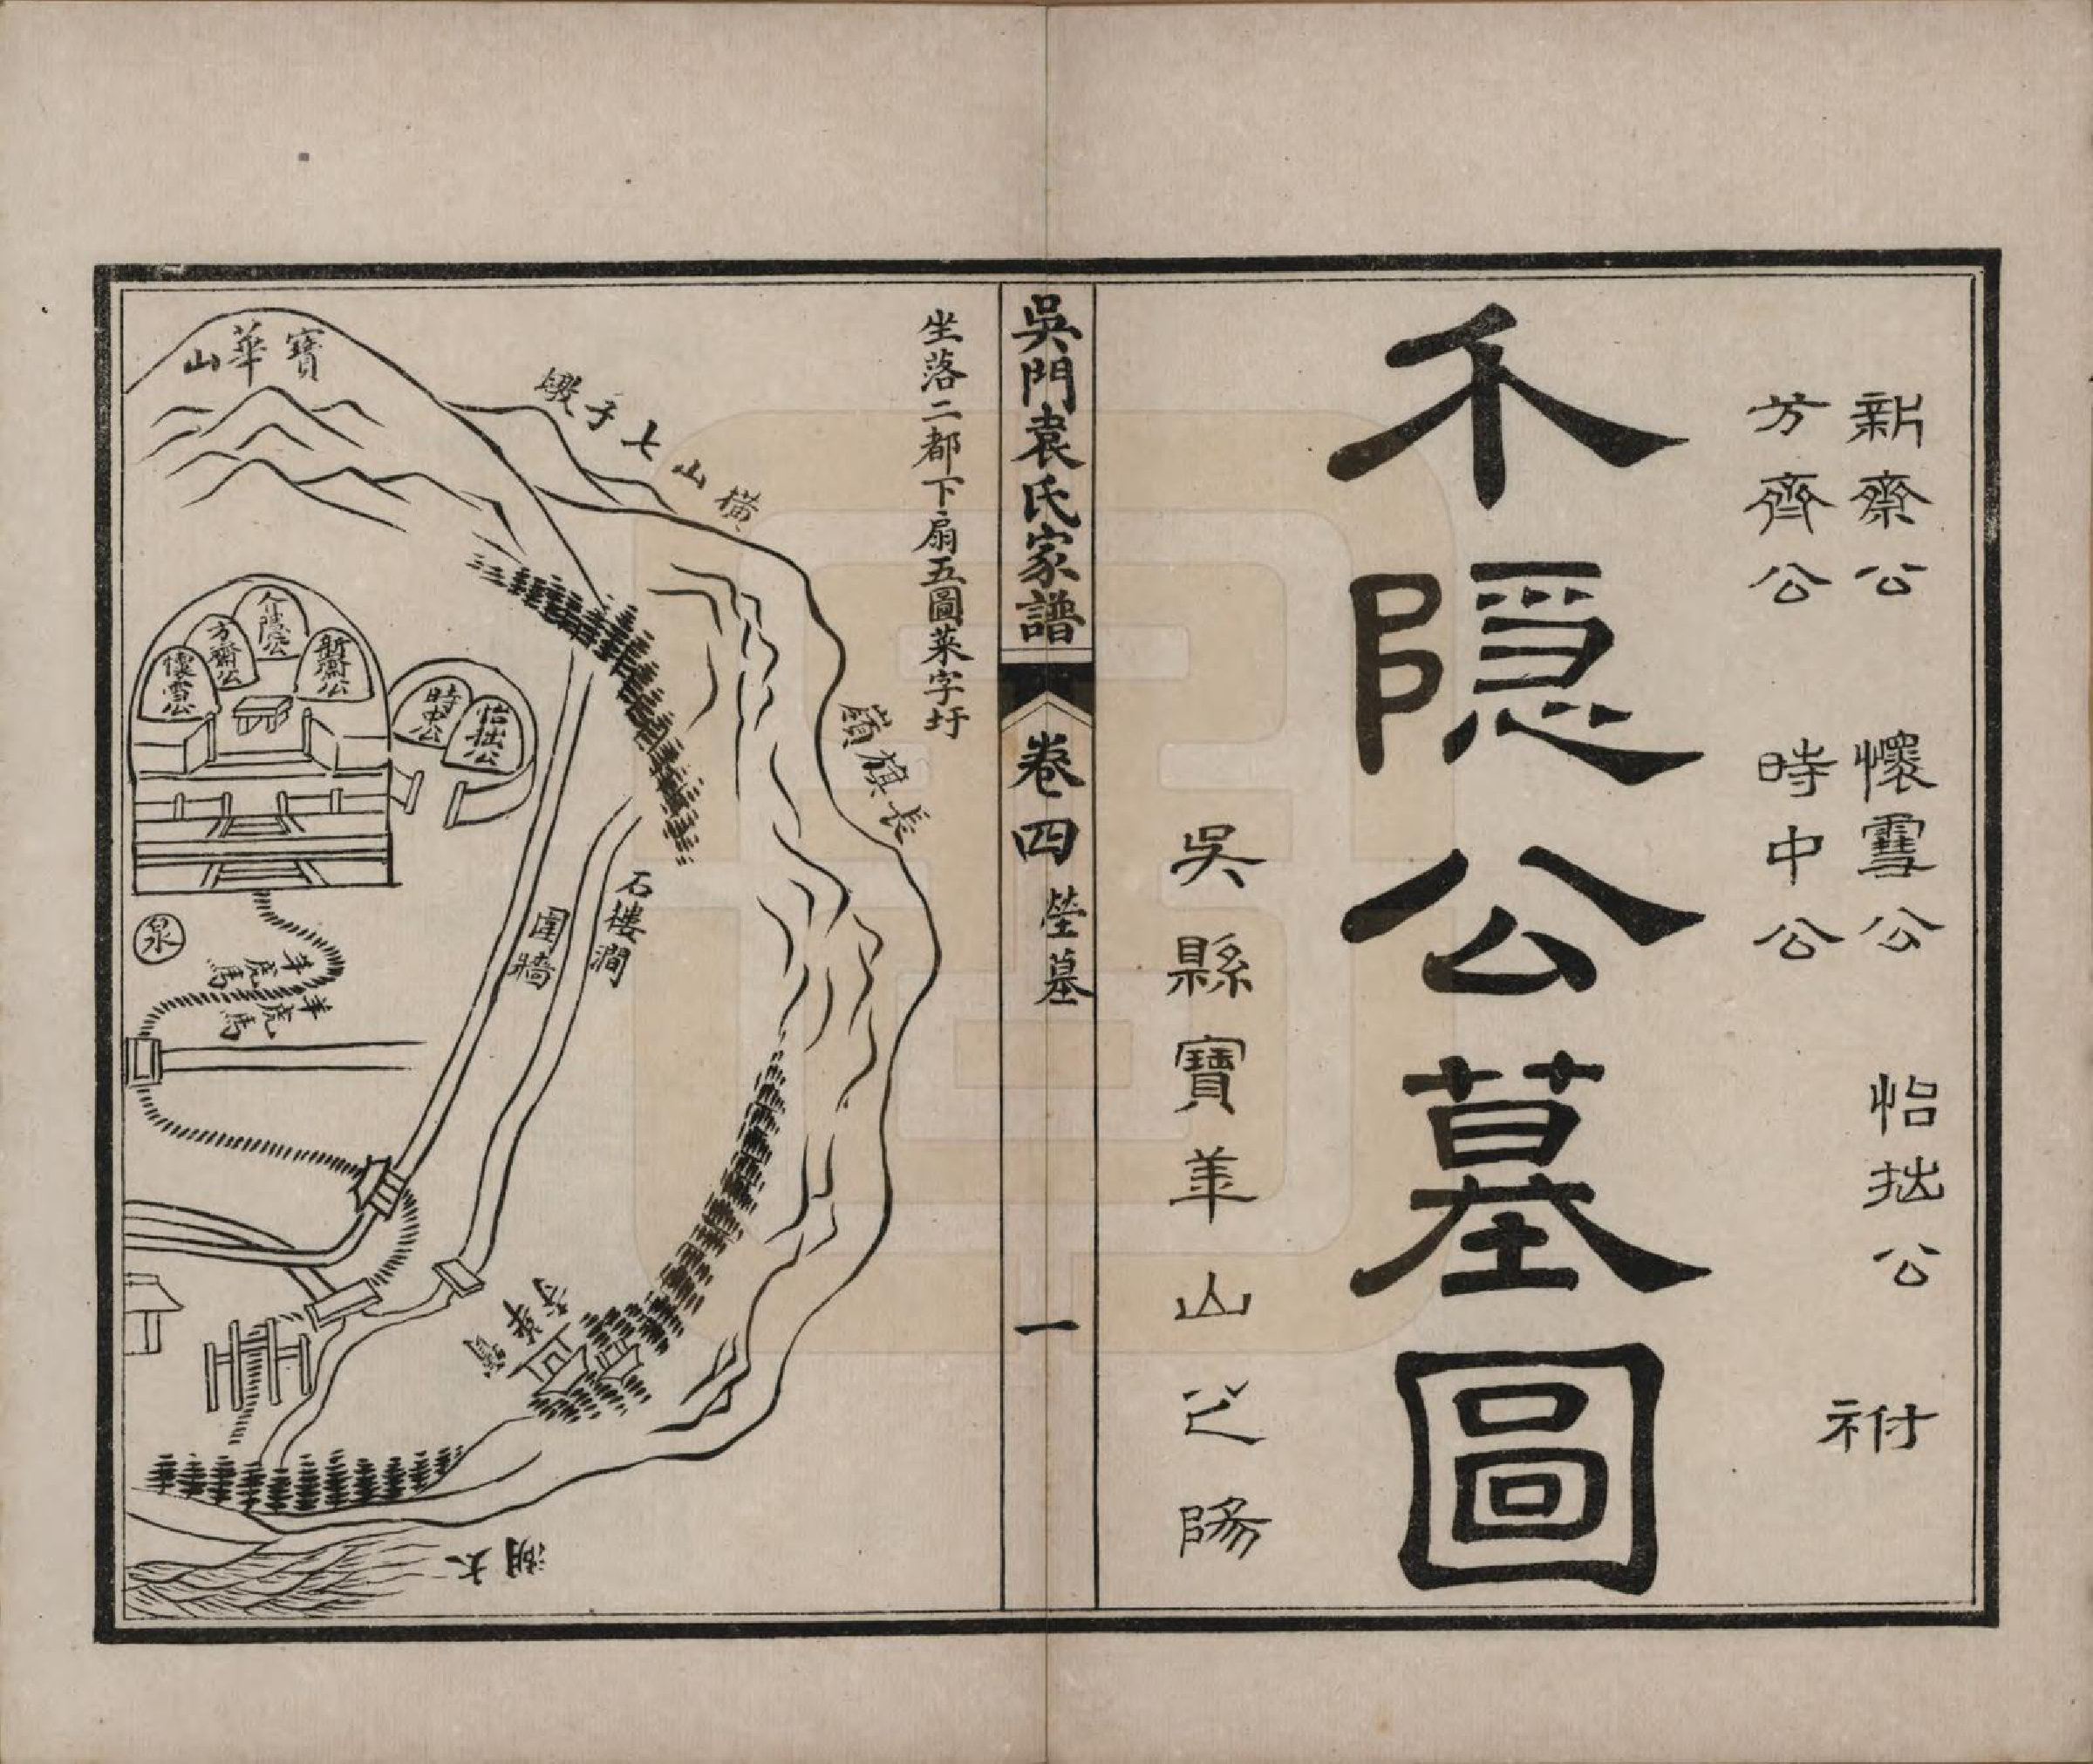 新齋公　懷雪公　怡拙公　祔
方齊公　時中公
介隱公墓圖
吳縣寶華山之陽
吳門袁氏家譜　卷四　塋墓　一
坐落二都下扇五圖菜字圩
橫山七子墩
長旗嶺
寶華山
介隱公
新齋公
方齋公
懷雪公
時中公
怡拙公
石樓澗
圍牆
羊虎馬
羊虎馬
泉
寶華寺
太湖